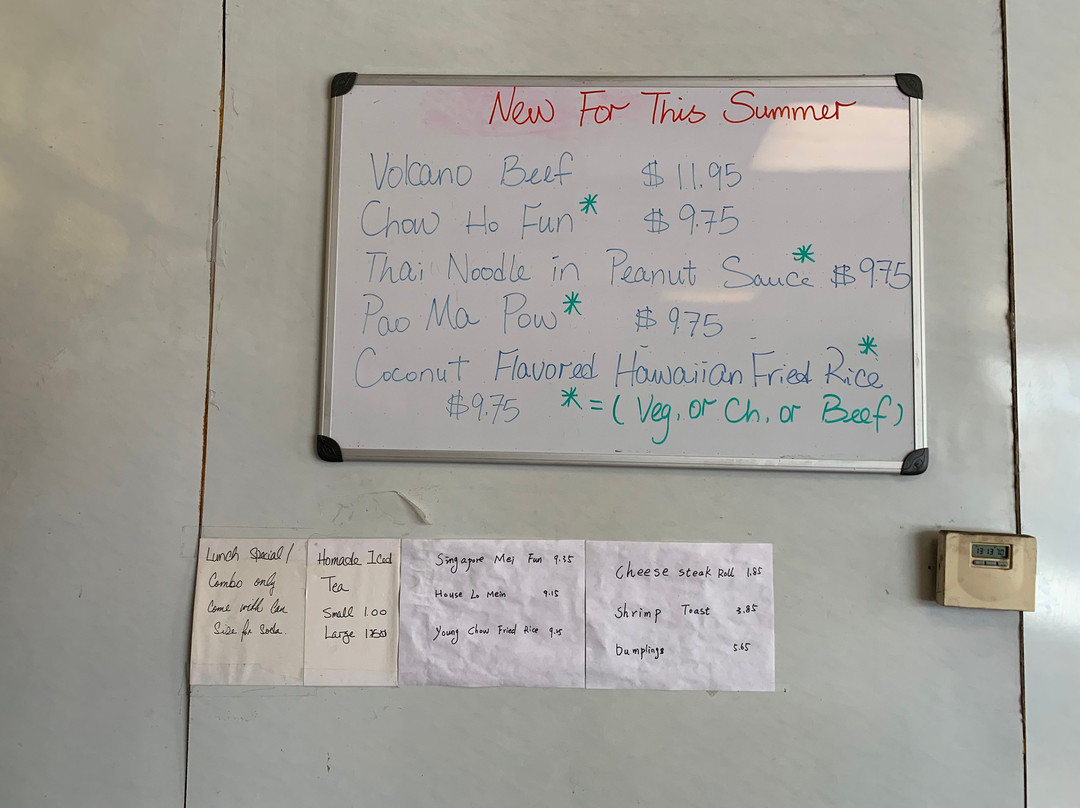 New For This Summer
Volcano Beef $11.95
Chow Ho Fun* $9.75
Thai Noodle in Peanut Sauce* $9.75
Pao Ma Pow* $9.75
Coconut Flavored Hawaiian Fried Rice*
$9.75 *=(Veg. or Ch. or Beef)
Lunch Special/
Combo only
Come with Can
Size for Soda.
Homade Iced
Tea
Small 1.00
Large
Singapore Mei Fun 9.35
House Lo Mein 9.15
Young Chow Fried Rice 9.15
Cheese steak Roll 1.85
Shrimp Toast 3.85
Dumplings 5.65